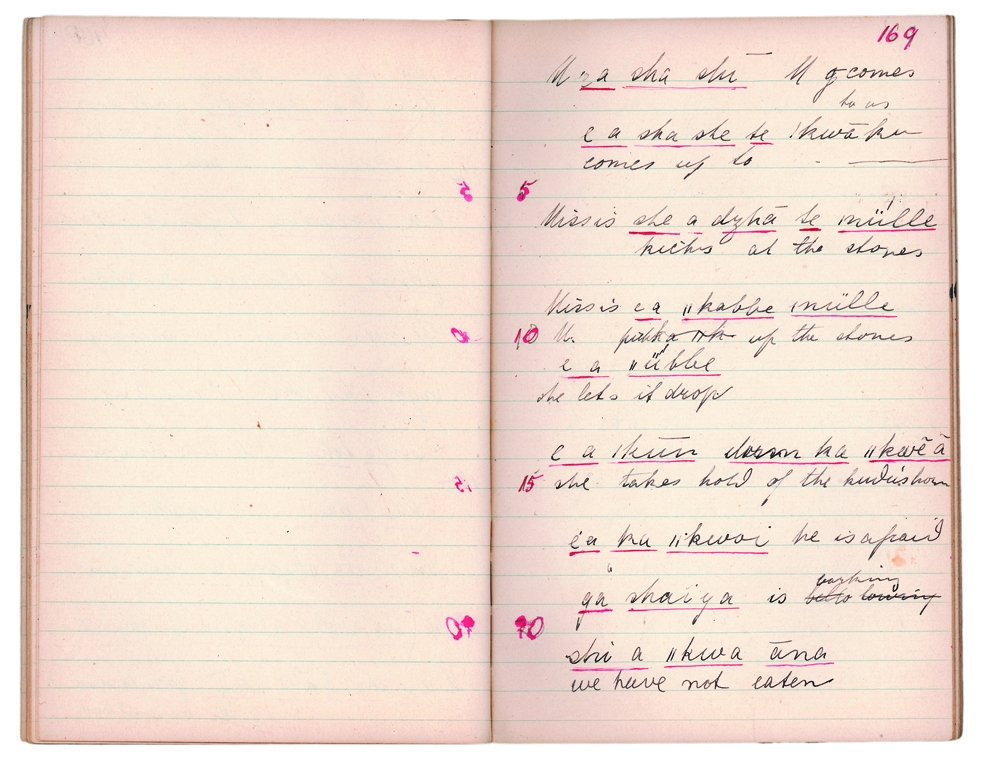 169
M za sha shi M g comes
to us
e a sha she te ǀkwā ku
comes up to
5
Missis she a dzhā te nüille
kicks at the stones
Missis e a ǁkabbe ǀnüille
10 M. up the stones
e a ǁübbe
she lets it drop
e a ǀkūn ka ǁkwē ā
15 she takes hold of the kuduishorn
éa ka ǁkwoi he is afraid
barking
ga shaiya is bellowing
20
shi a ǁkwa āna
we have not eaten